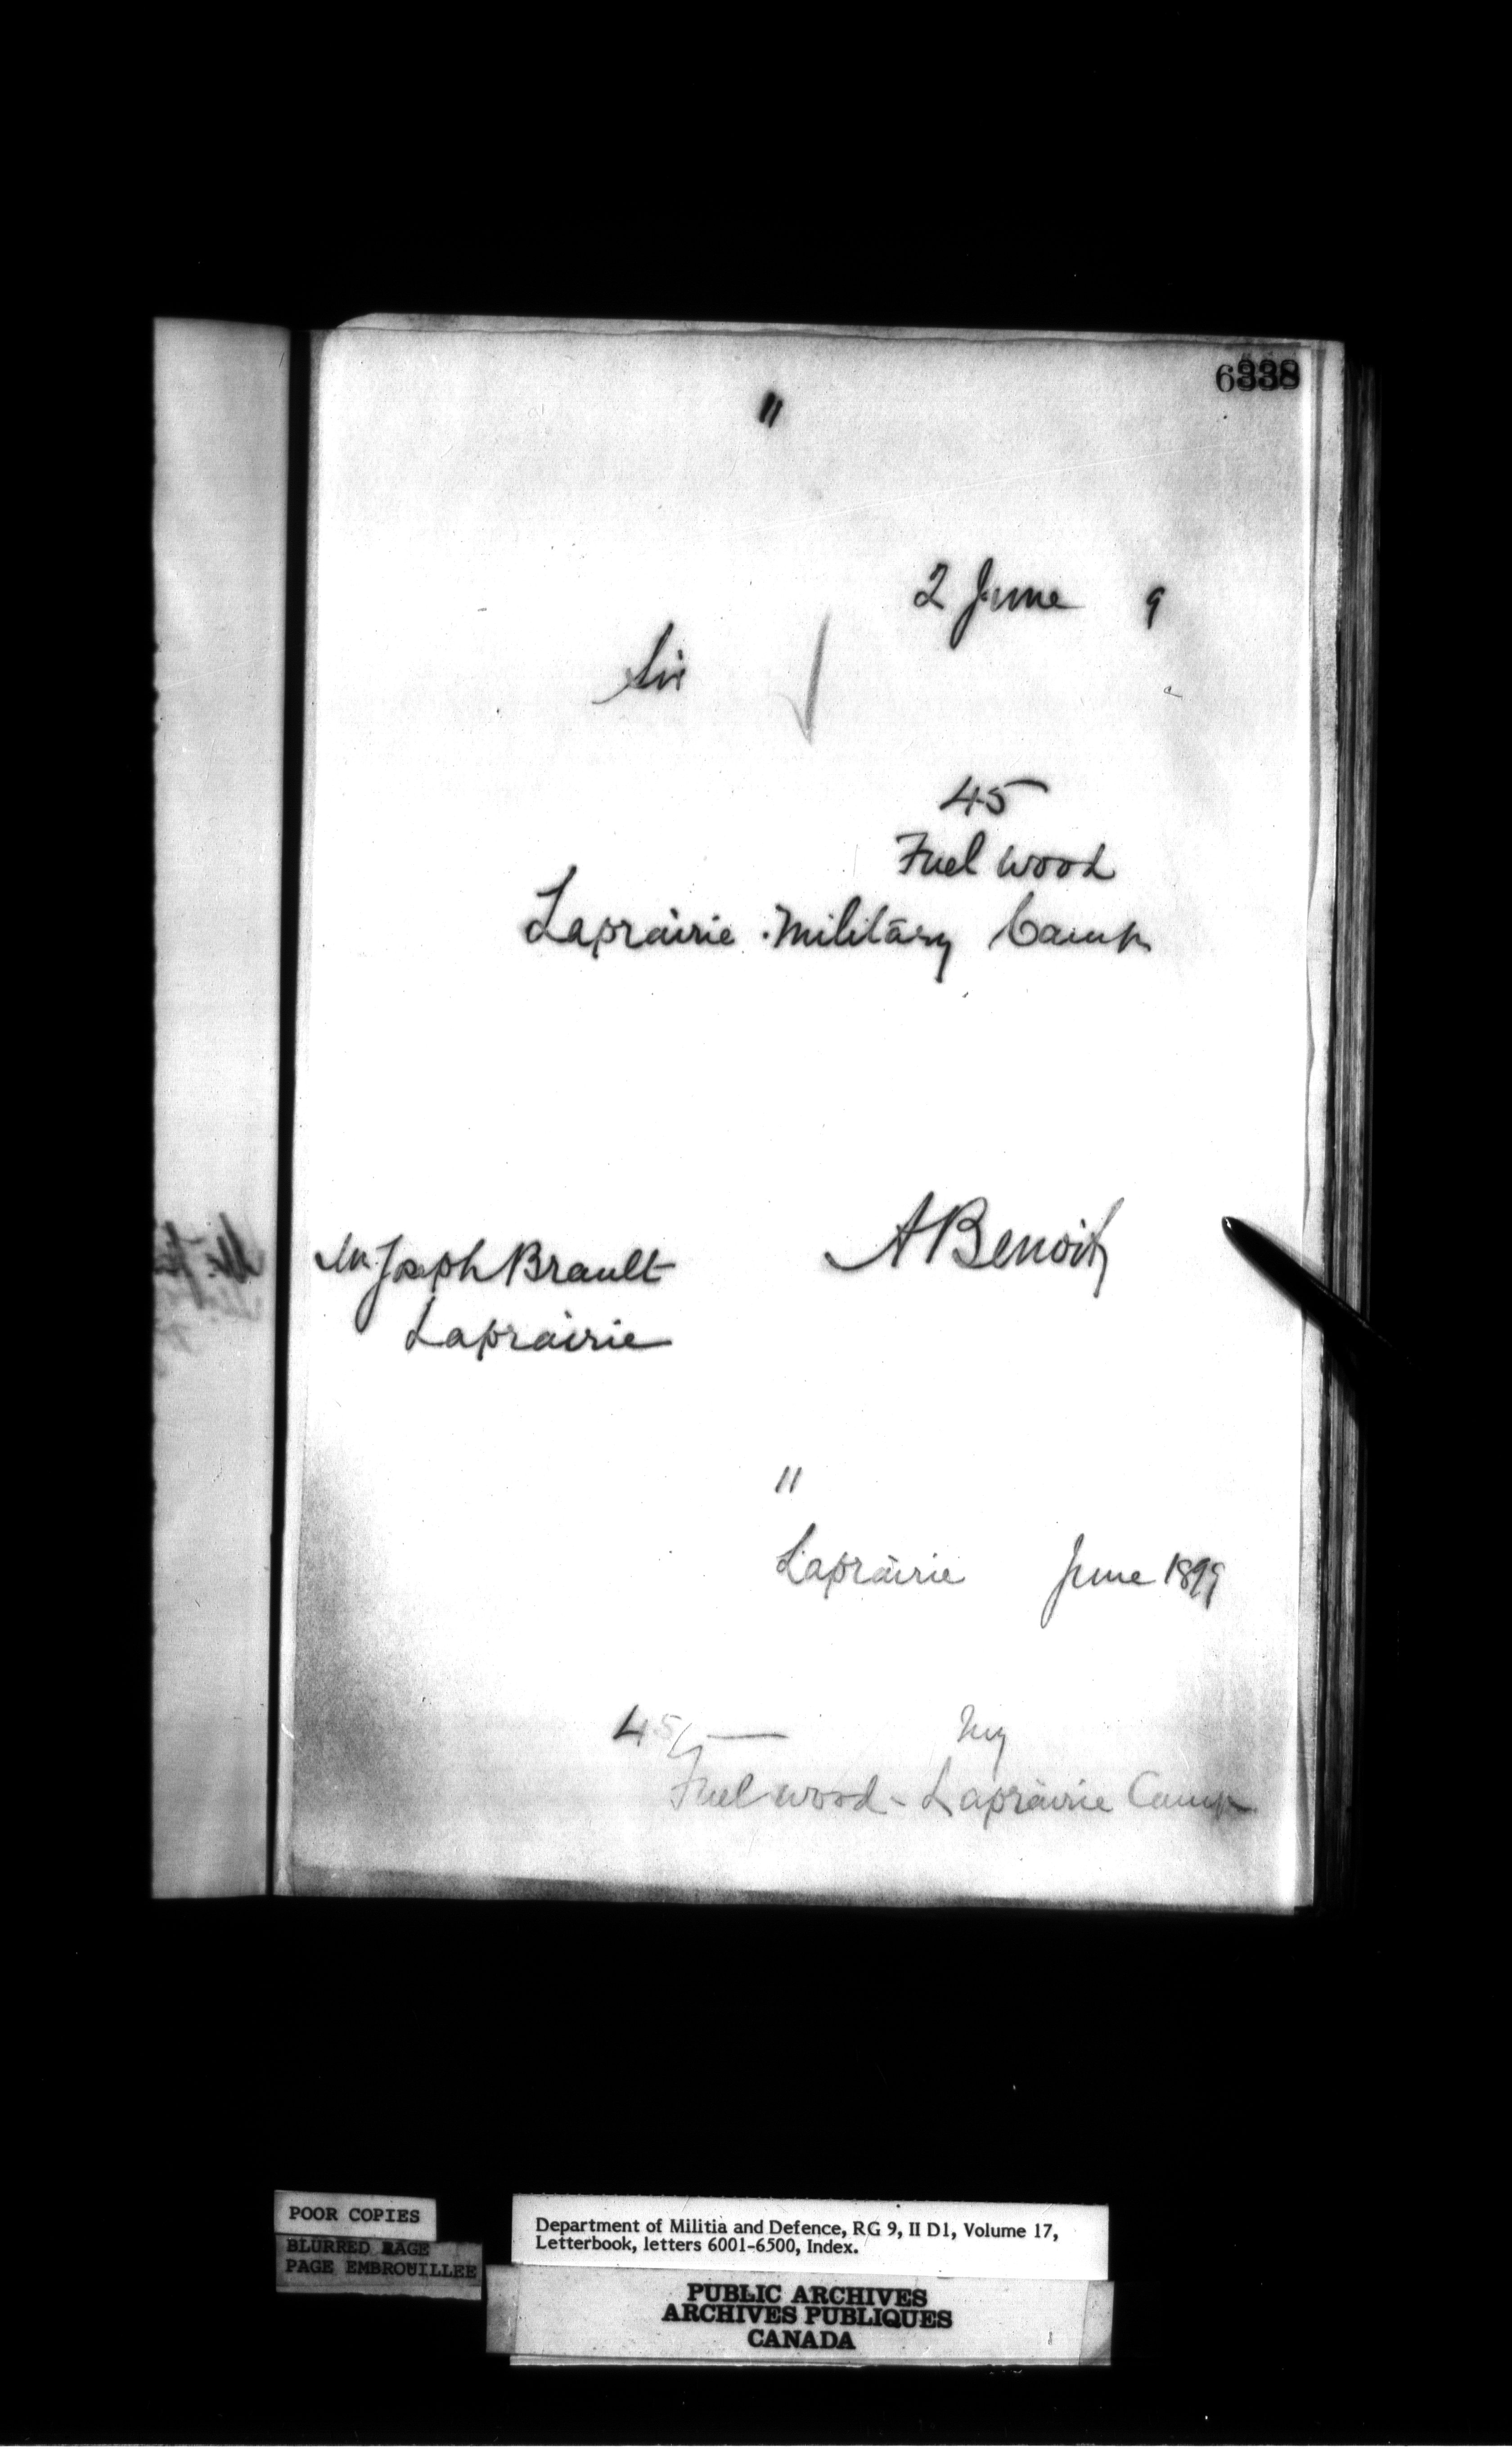 6338
"
2 June 9
Sir
45
Fuel wood
Laprairie Military Camp
A Benoit
Mr. Joseph Brault
Laprairie
"
Laprairie June 1899
45/— My
Fuel wood - Laprairie Camp
POOR COPIES
BLURRED PAGE
PAGE EMBROUILLEE
Department of Militia and Defence, RG 9, II D1, Volume 17,
Letterbook, letters 6001-6500, Index.
PUBLIC ARCHIVES
ARCHIVES PUBLIQUES
CANADA